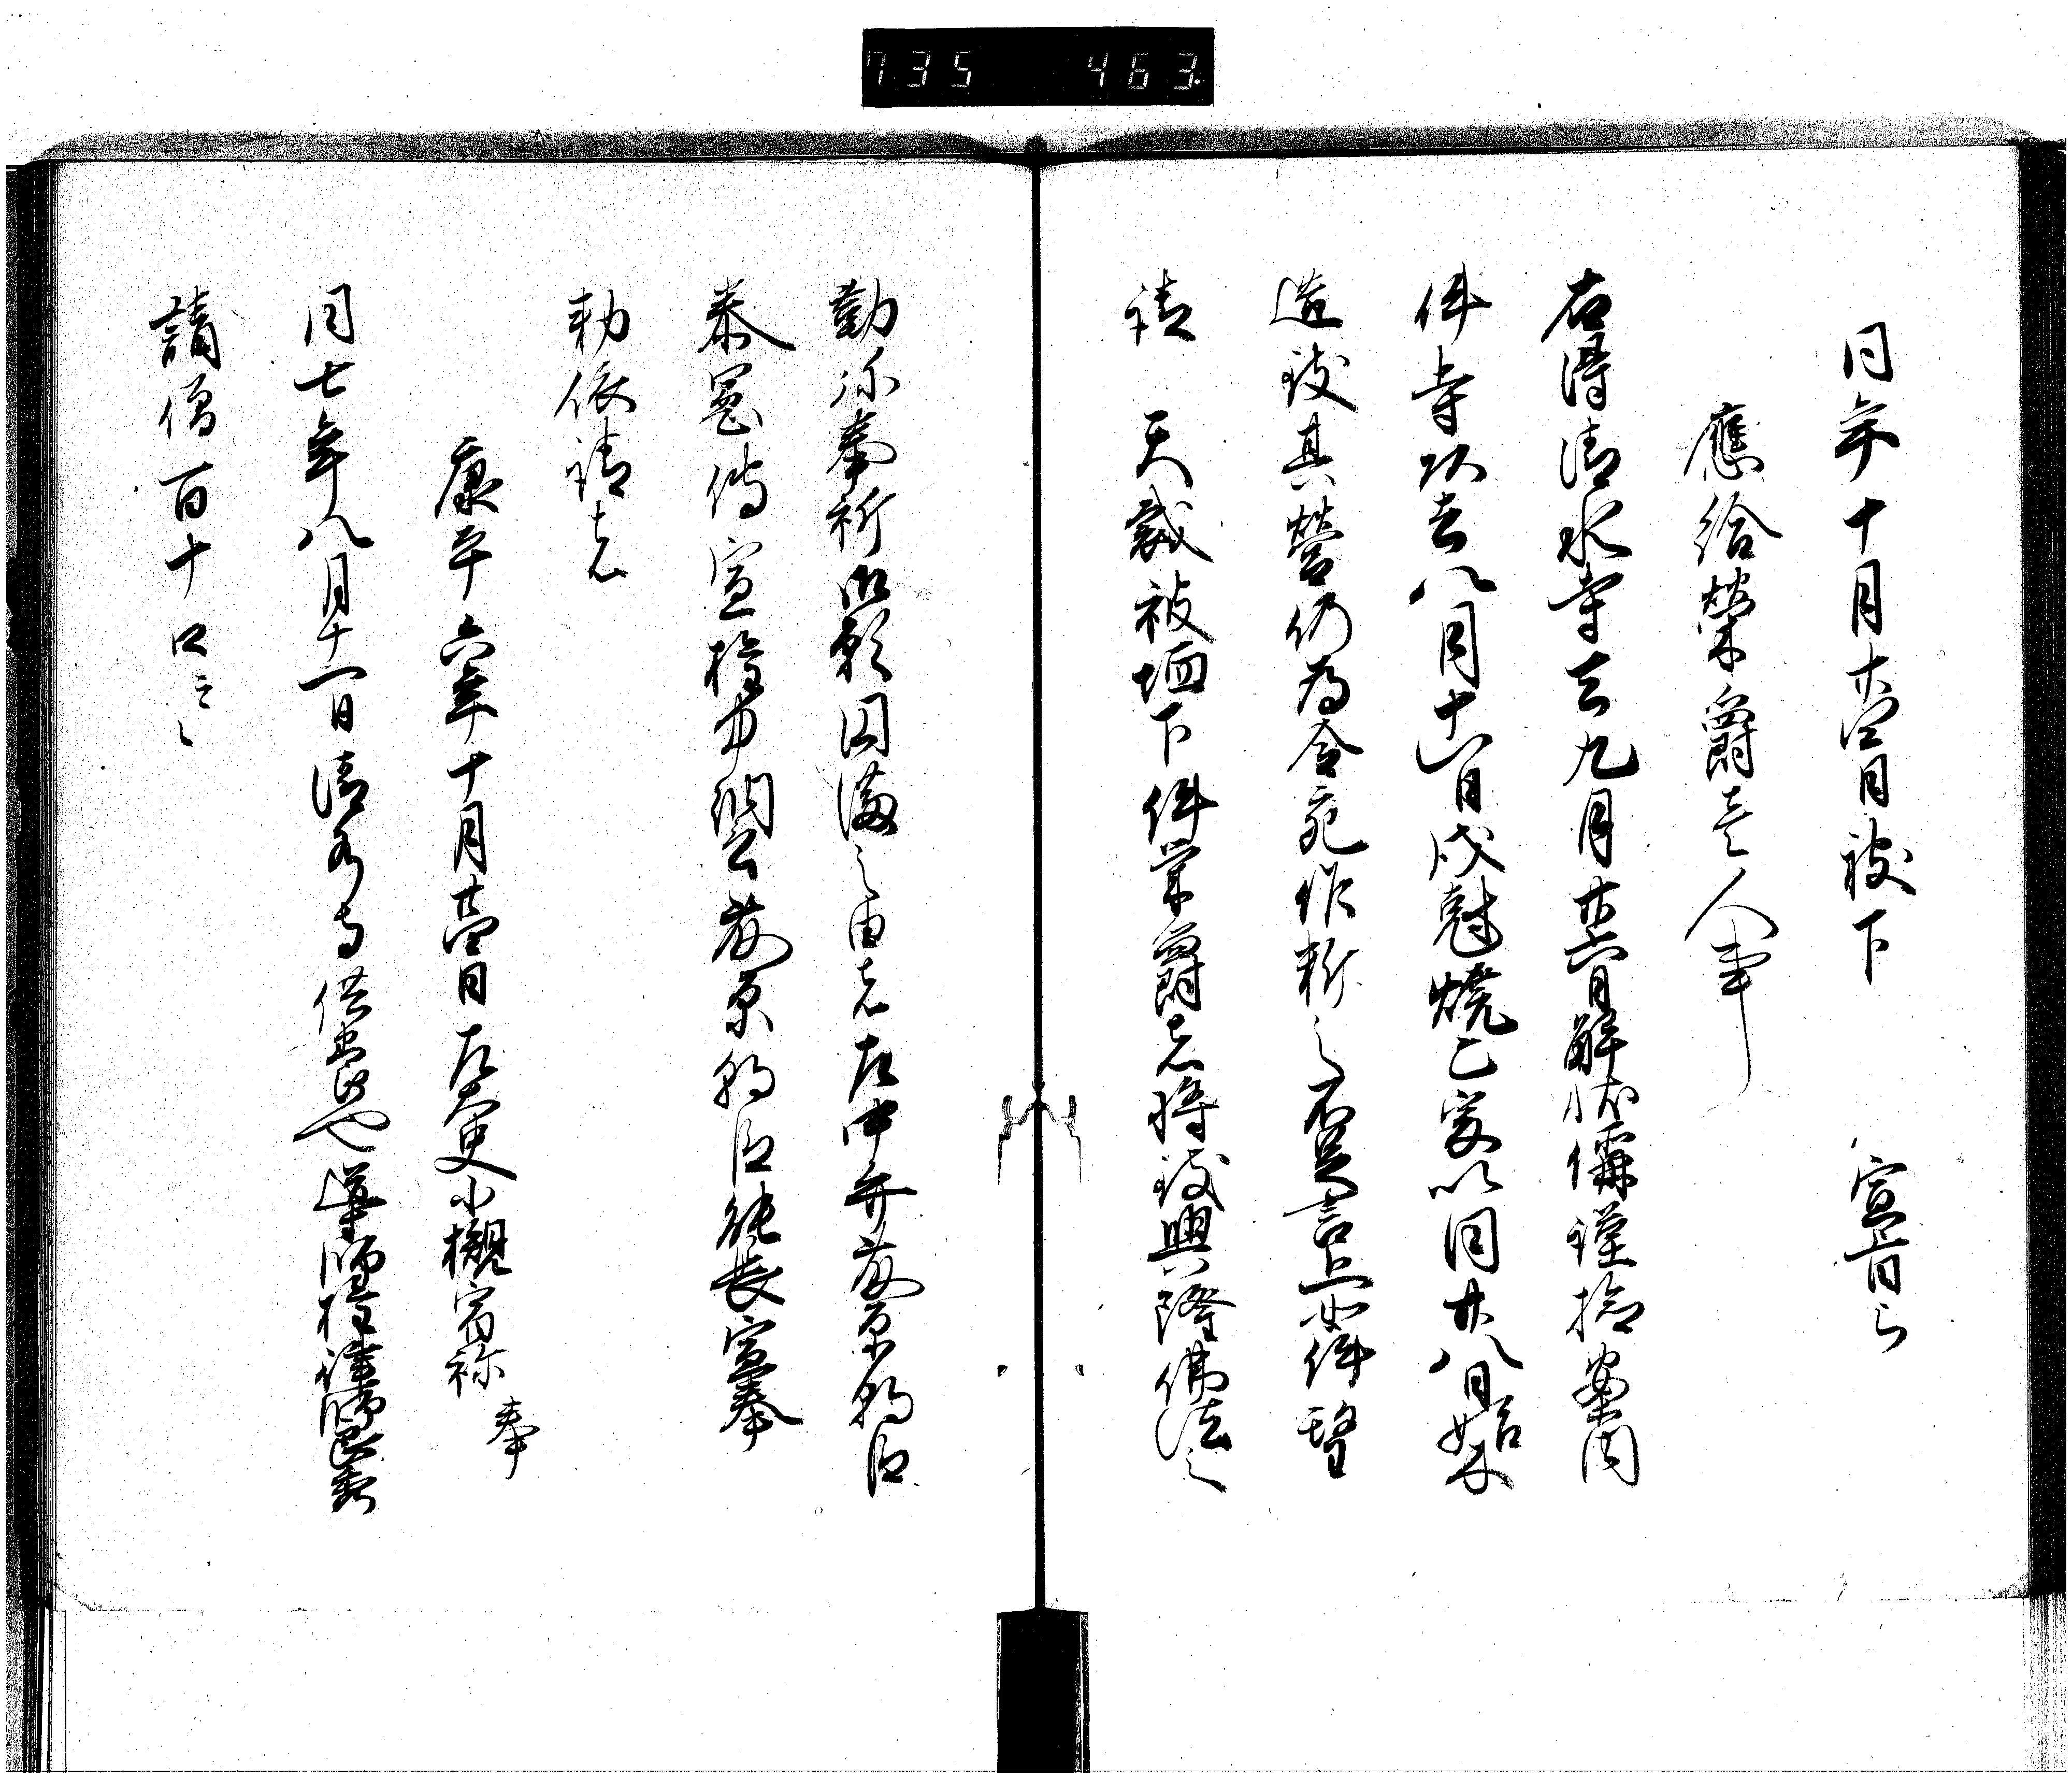 735 463
同年十月廿四日被下 宣旨了
應給榮爵壹人事
右得清水寺去九月廿六日解状偁謹撿案内
件寺以去八月十八日戌尅焼亡爰以同廿八日始木
造致其營仍為令宛作料之不足言上如件望
請 天裁被垣下件榮爵者将致興隆佛法之
勤弥奉祈御願圓満之由者左中弁藤原朝臣
泰憲傳宣権中納言藤原朝臣能長宣奉
勅依請者
康平六年十月廿四日左大史小槻宿祢 奉
同七年八月十一日清水寺供養也導師権律師
請僧百十口云々